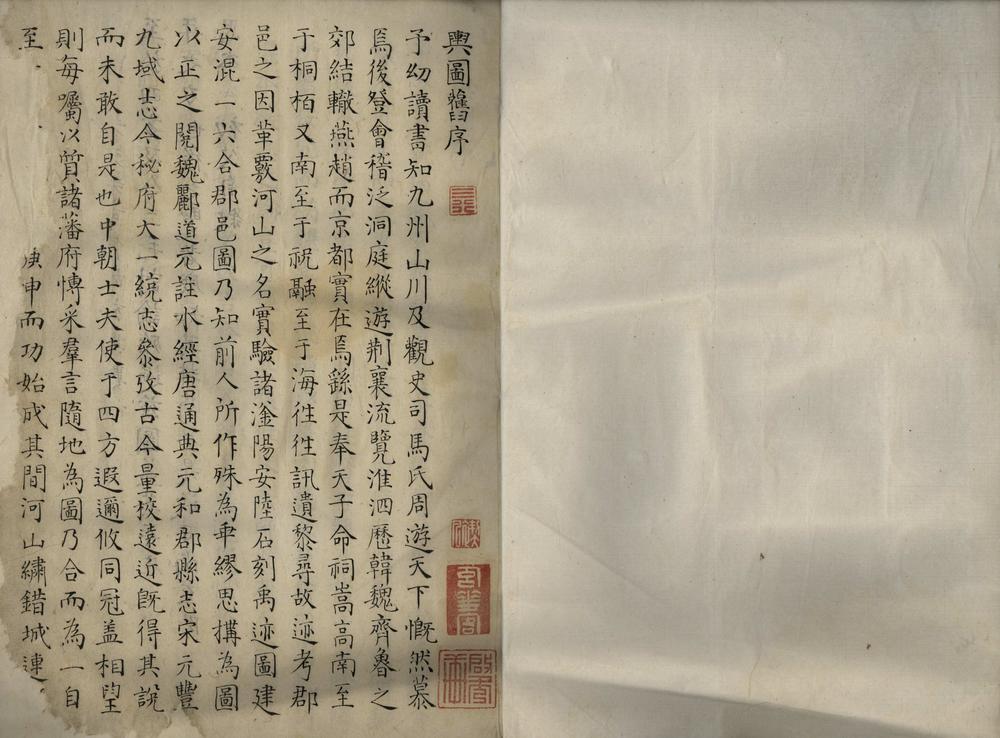 輿圖舊序
予幼讀書知九州山川及觀史司馬氏周遊天下慨然慕
焉後登會稽泛洞庭縱遊荆襄流覽淮泗歷韓魏齊魯之
郊結轍燕趙而京都實在焉繇是奉天子命祠嵩高南至
于桐栢又南至于祝融至于海徃徃訊遺黎尋故迹考郡
邑之因革覈河山之名實驗諸滏陽安陸石刻禹迹圖建
安混一六合郡邑圖乃知前人所作殊為乖繆思搆為圖
以正之閱魏酈道元註水經唐通典元和郡縣志宋元豐
九域志今秘府大一統志叅攷古今量校遠近旣得其說
而未敢自是也中朝士夫使于四方遐邇攸同冠盖相望
則每囑以質諸藩府慱采羣言隨地為圖乃合而為一自
至 庚申而功始成其間河山繡錯城連